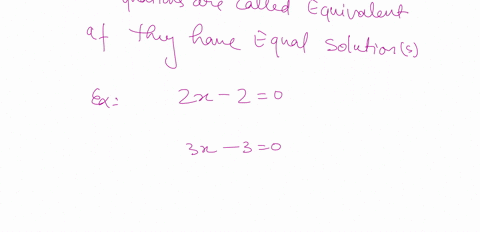 quations are called Equivalent
if they have Equal solution(s)
Ex: 2x - 2 = 0
3x - 3 = 0